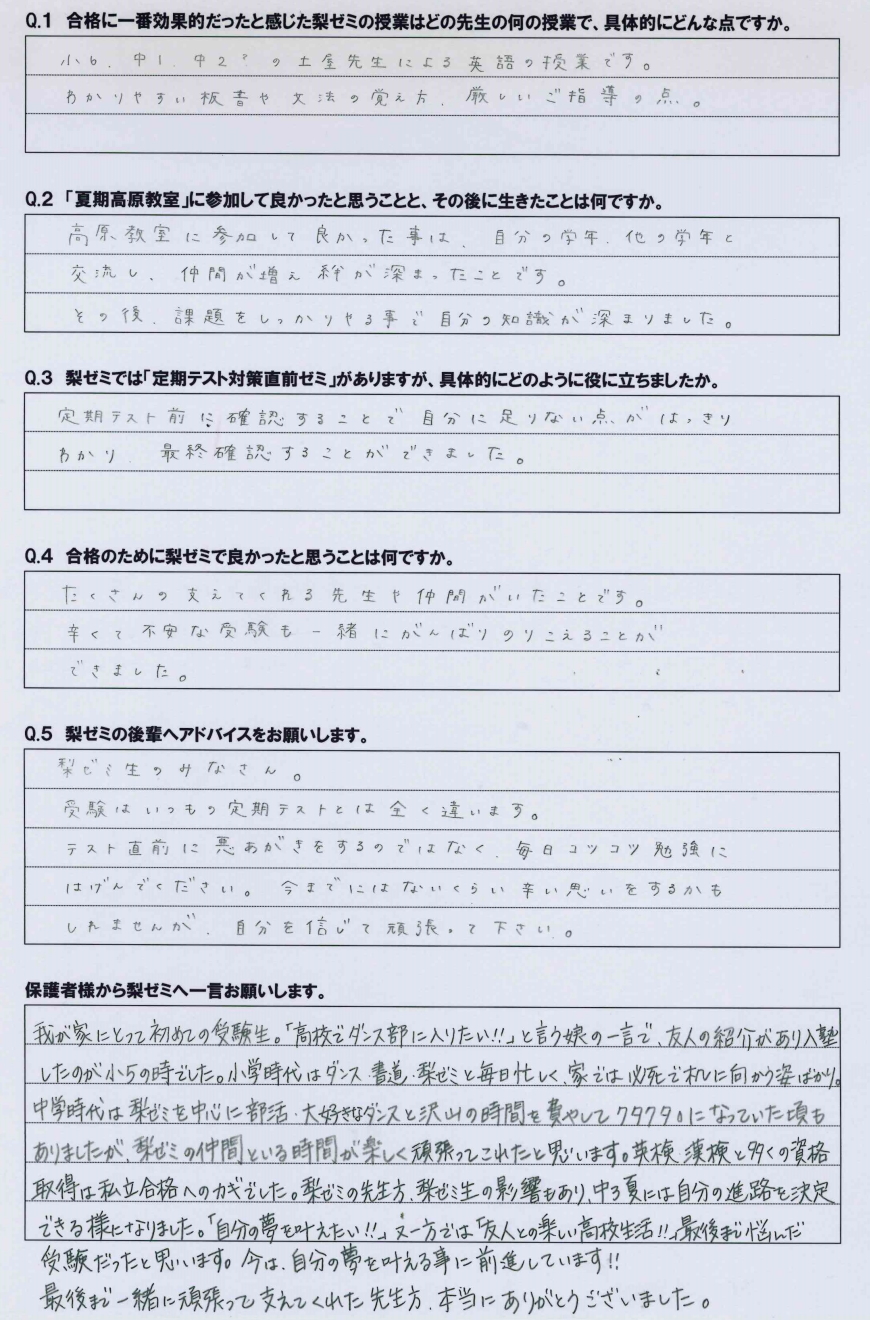 Q.1 合格に一番効果的だったと感じた梨ゼミの授業はどの先生の何の授業で、具体的にどんな点ですか。
小6、中1、中2?の土屋先生による英語の授業です。
わかりやすい板書や文法の覚え方、厳しいご指導の点。
Q.2 「夏期高原教室」に参加して良かったと思うことと、その後に生きたことは何ですか。
高原教室に参加して良かった事は、自分の学年、他の学年と
交流し、仲間が増え絆が深まったことです。
その後、課題をしっかりやる事で自分の知識が深まりました。
Q.3 梨ゼミでは「定期テスト対策直前ゼミ」がありますが、具体的にどのように役に立ちましたか。
定期テスト前に確認することで自分に足りない点がはっきり
わかり、最終確認することができました。
Q.4 合格のために梨ゼミで良かったと思うことは何ですか。
たくさんの支えてくれる先生や仲間がいたことです。
辛くて不安な受験も一緒にがんばりのりこえることが
できました。
Q.5 梨ゼミの後輩へアドバイスをお願いします。
梨ゼミ生のみなさん。
受験はいつもの定期テストとは全く違います。
テスト直前に悪あがきをするのではなく、毎日コツコツ勉強に
はげんでください。今までにはないくらい辛い思いをするかも
しれませんが、自分を信じて頑張って下さい。
保護者様から梨ゼミへ一言お願いします。
我が家にとって初めての受験生。「高校でダンス部に入りたい!!」と言う娘の一言で、友人の紹介があり入塾
したのが小5の時でした。小学時代はダンス、書道、梨ゼミと毎日忙しく、家では必死で机に向かう姿ばかり。
中学時代は梨ゼミを中心に部活、大好きなダンスと沢山の時間を費やしてクタクタになっていた頃も
ありましたが、梨ゼミの仲間といる時間が楽しく頑張ってこれたと思います。英検、漢検と多くの資格
取得は私立合格へのカギでした。梨ゼミの先生方、梨ゼミ生の影響もあり、中3夏には自分の進路を決定
できる様になりました。「自分の夢を叶えたい!!」又一方では「友人との楽しい高校生活!!」最後まで悩んだ
受験だったと思います。今は、自分の夢を叶える事に前進しています!!
最後まで一緒に頑張って支えてくれた先生方、本当にありがとうございました。